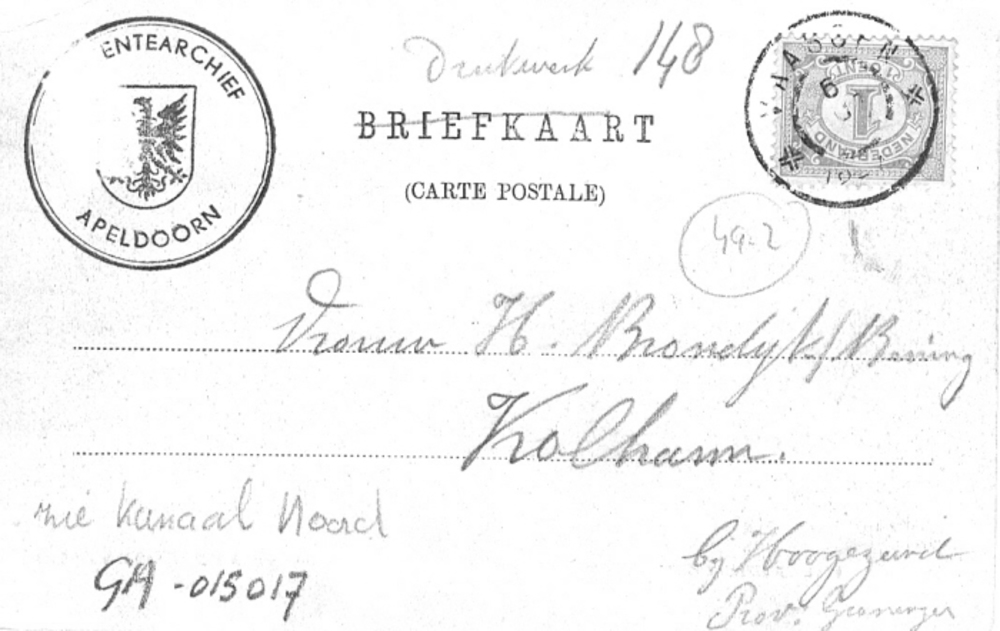 ENTEARCHIEF
APELDOORN
Drukwerk 148
BRIEFKAART
(CARTE POSTALE)
VHASSEN
6
1 NEDERLAND 1
49-2
Vrouw H. Brondijk/Bening
Kolham.
zie Kanaal Noord
GA-015017
bij Hoogezand
Prov. Groningen